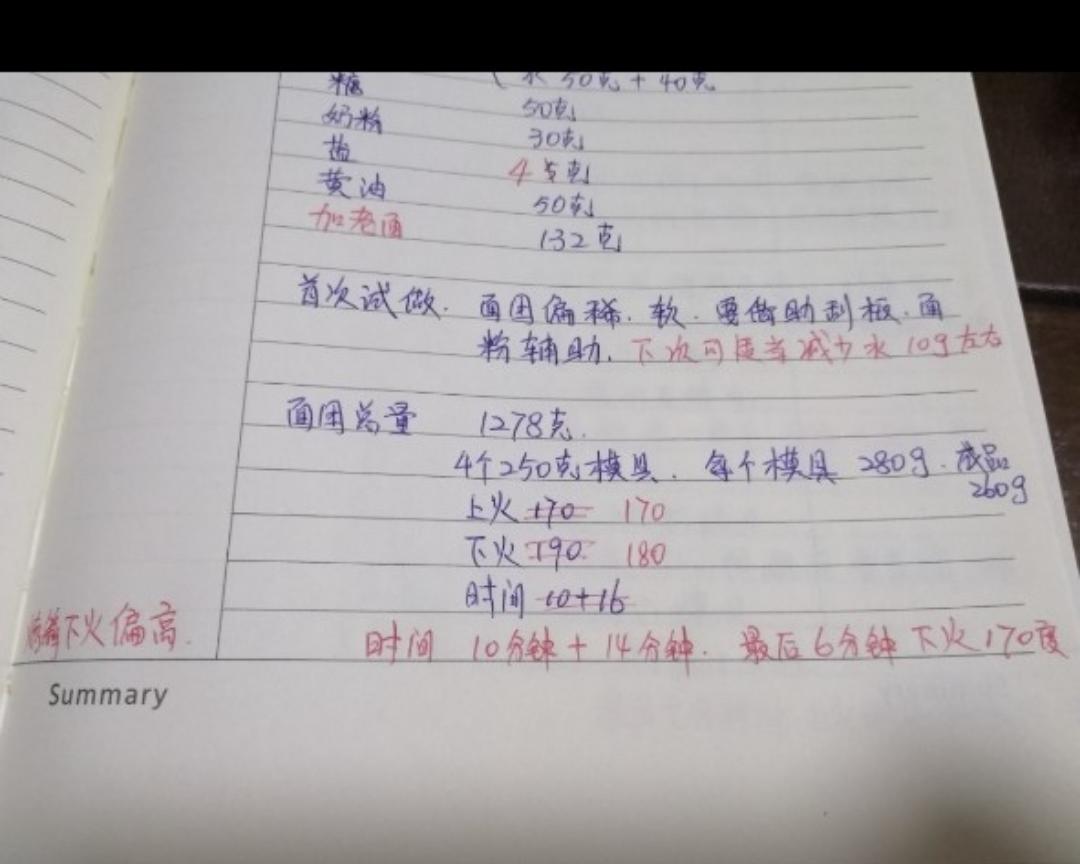 糖 ( 水 50克 + 40克
奶粉 50克
盐 30克
黄油 4 5克
加老面 50克
132克
首次试做. 面团偏稀. 软. 要借助刮板. 面
粉辅助. 下次可适当减少水 10g左右
面团总量 1278克.
4个250克模具. 每个模具 280g. 成品
260g
上火 170 170
下火 190 180
时间 10+16
下火偏高.
时间 10分钟 + 14分钟. 最后6分钟 下火170度
Summary